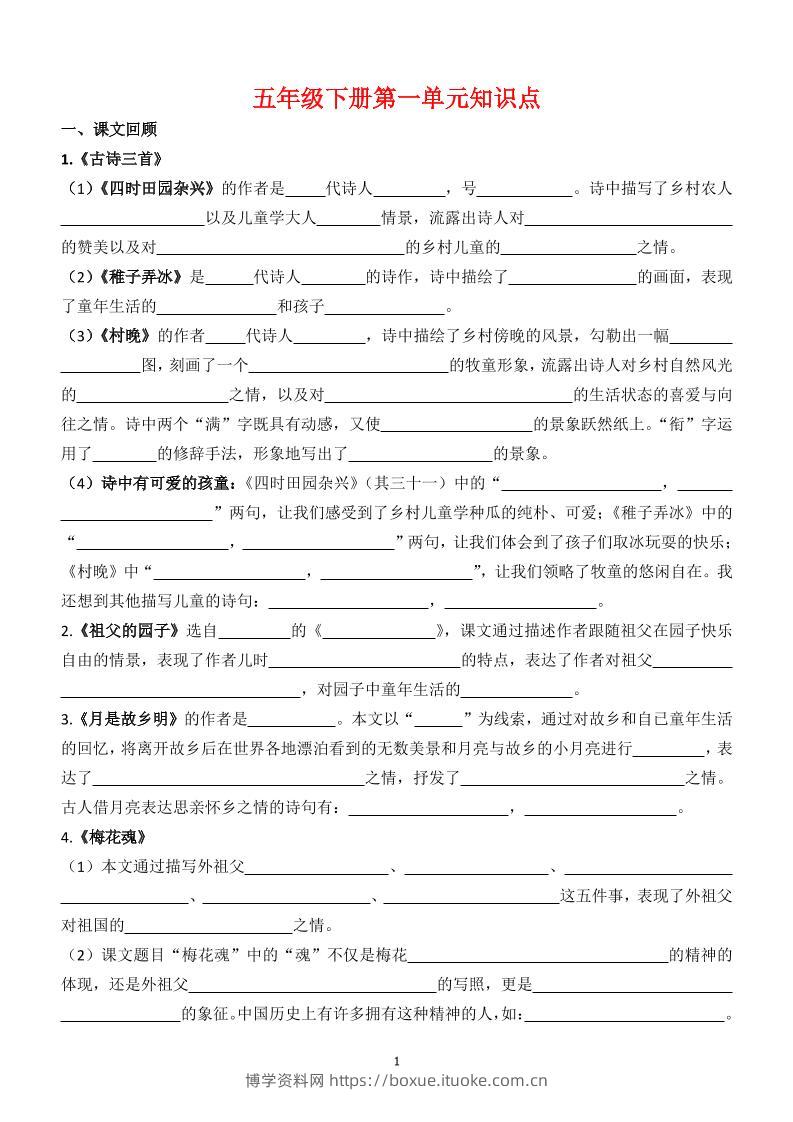 五年级下册第一单元知识点
一、课文回顾
1.《古诗三首》
（1）《四时田园杂兴》的作者是_____代诗人_________，号____________。诗中描写了乡村农人
__________________以及儿童学大人________情景，流露出诗人对__________________________
的赞美以及对_______________________________的乡村儿童的_________________之情。
（2）《稚子弄冰》是______代诗人________的诗作，诗中描绘了________________的画面，表现
了童年生活的_______________和孩子_______________。
（3）《村晚》的作者_____代诗人_________，诗中描绘了乡村傍晚的风景，勾勒出一幅________
__________图，刻画了一个_________________________的牧童形象，流露出诗人对乡村自然风光
的___________________之情，以及对_______________________________的生活状态的喜爱与向
往之情。诗中两个“满”字既具有动感，又使___________________的景象跃然纸上。“衔”字运
用了________的修辞手法，形象地写出了__________________的景象。
（4）诗中有可爱的孩童：《四时田园杂兴》（其三十一）中的“____________________，_______
___________________”两句，让我们感受到了乡村儿童学种瓜的纯朴、可爱；《稚子弄冰》中的
“___________________，___________________”两句，让我们体会到了孩子们取冰玩耍的快乐；
《村晚》中“___________________，___________________”，让我们领略了牧童的悠闲自在。我
还想到其他描写儿童的诗句：____________________，___________________。
2.《祖父的园子》选自_________的《______________》，课文通过描述作者跟随祖父在园子快乐
自由的情景，表现了作者儿时________________________的特点，表达了作者对祖父__________
______________________________，对园子中童年生活的______________。
3.《月是故乡明》的作者是___________。本文以“______”为线索，通过对故乡和自己童年生活
的回忆，将离开故乡后在世界各地漂泊看到的无数美景和月亮与故乡的小月亮进行_________，表
达了__________________________________之情，抒发了____________________________之情。
古人借月亮表达思亲怀乡之情的诗句有：____________________，___________________。
4.《梅花魂》
（1）本文通过描写外祖父__________________、__________________、_____________________
________________、_____________________、______________________这五件事，表现了外祖父
对祖国的_____________________之情。
（2）课文题目“梅花魂”中的“魂”不仅是梅花_________________________________的精神的
体现，还是外祖父_______________________________的写照，更是_________________________
_______________的象征。中国历史上有许多拥有这种精神的人，如：_________________________。
1
博学资料网 https://boxue.ituoke.com.cn